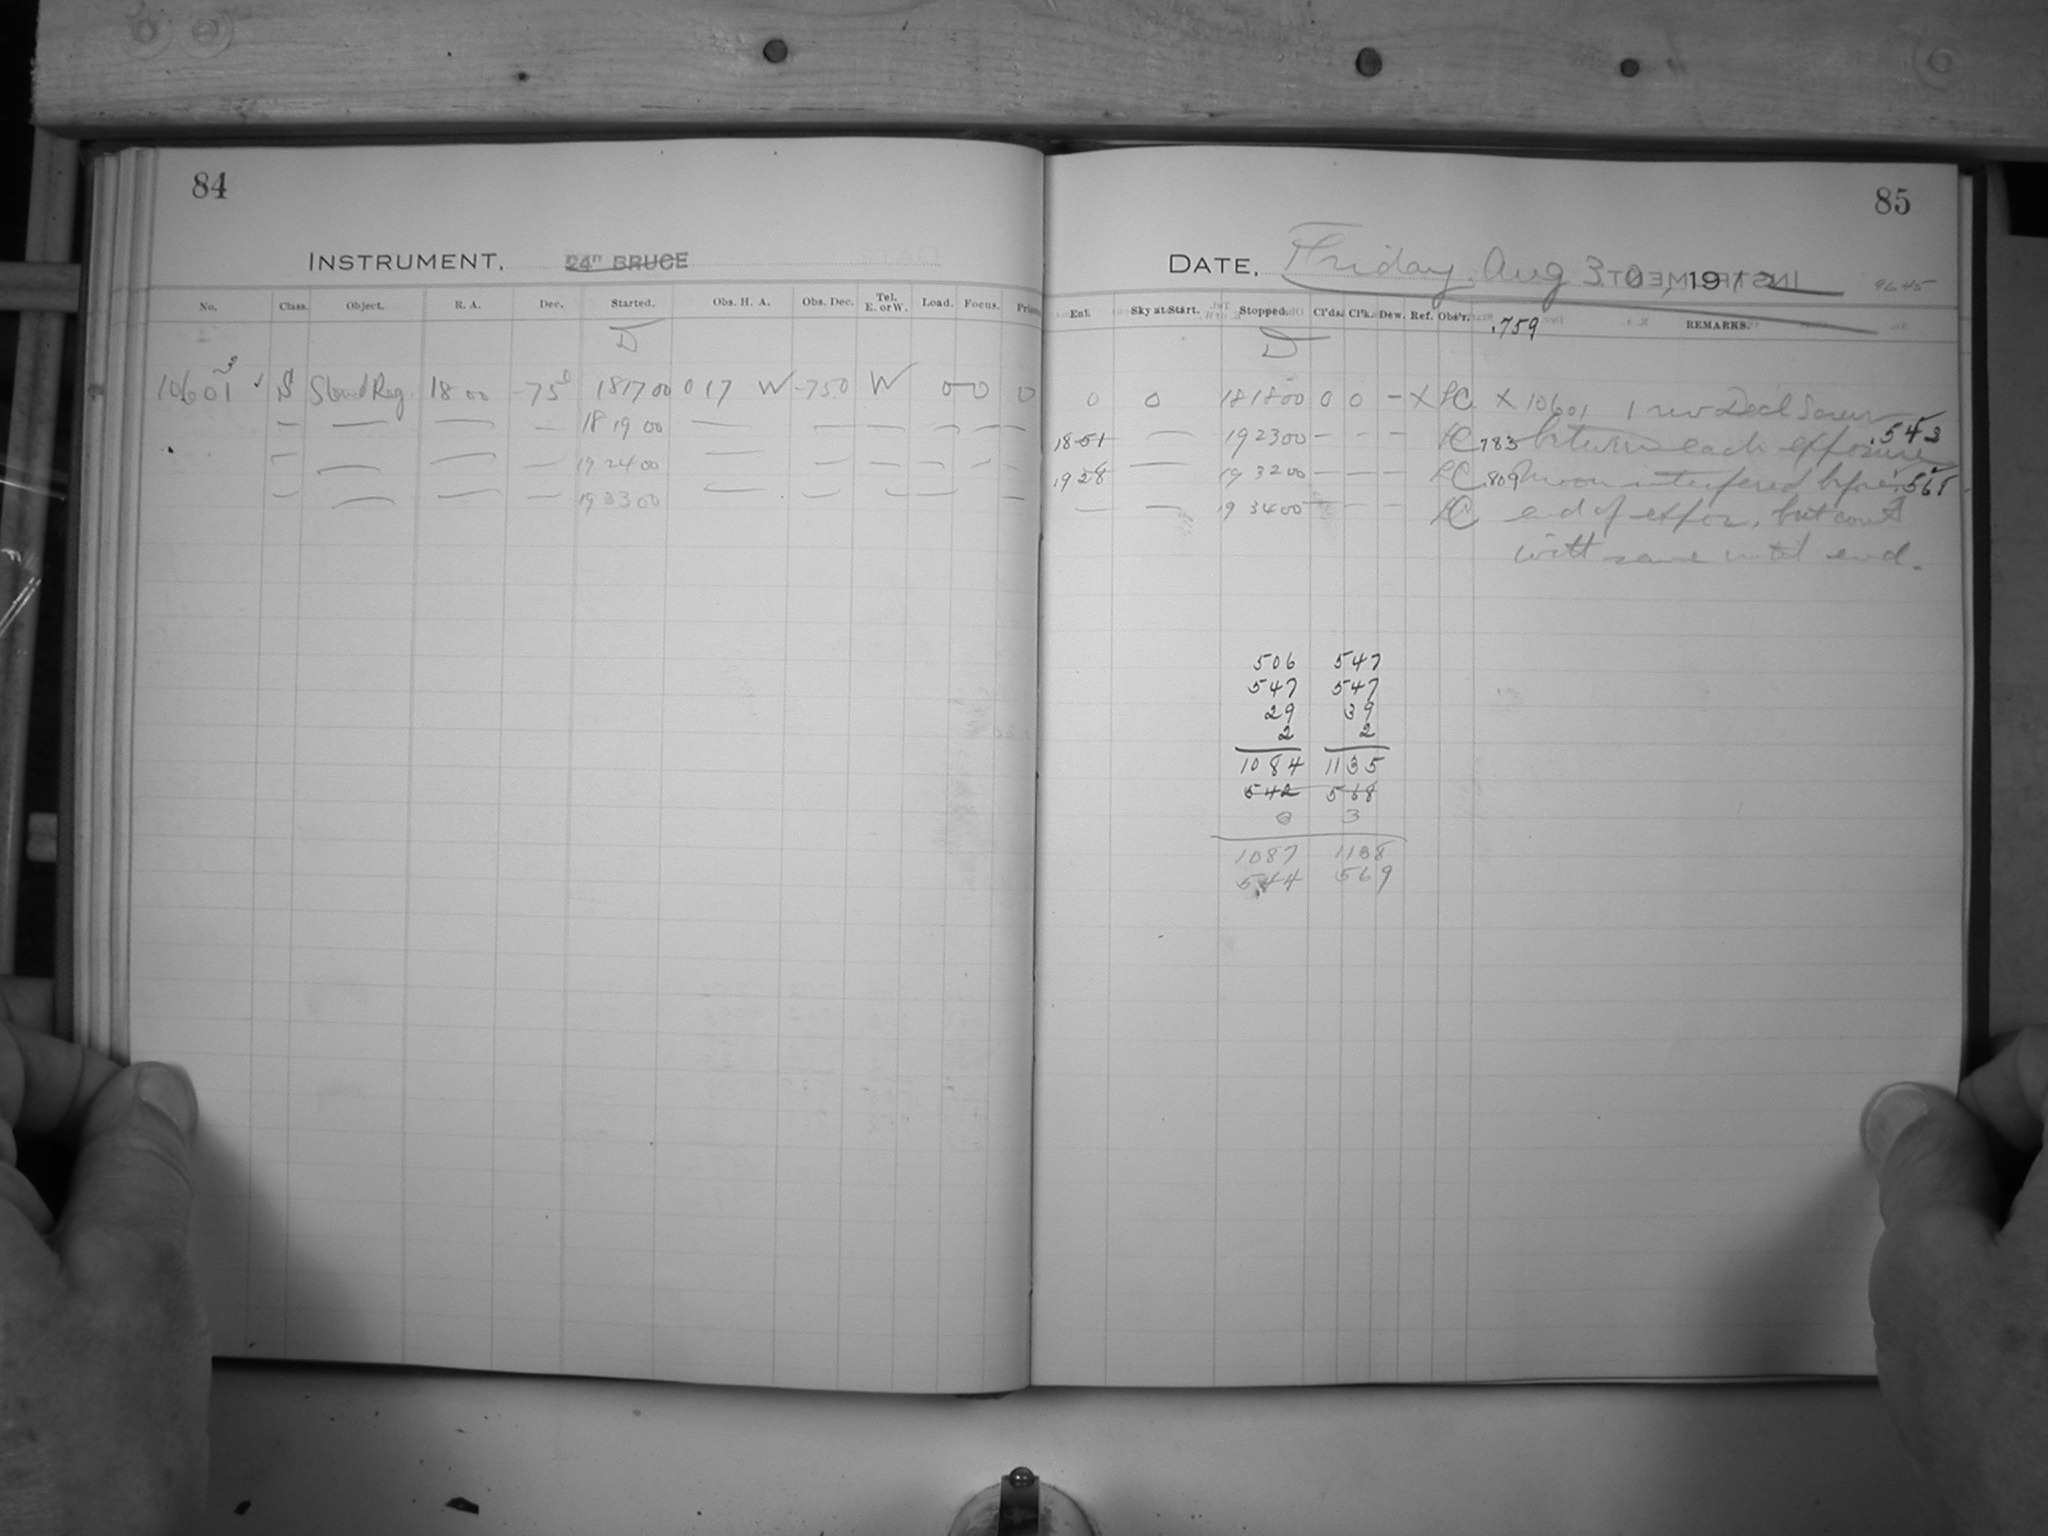 84
INSTRUMENT, 24" BRUCE
No. Class. Object. R. A. Dec. Started. Obs. H. A. Obs. Dec. Tel. E. or W. Load. Focus.
D
10601 S Stand Reg. 18 00 -75° 18 17 00 0 17 W -75 0 W 0 0 0
— — — — 18 19 00 — — — — — —
— — — — 19 24 00 — — — — — —
— — — — 19 33 00 — — — — —
85
DATE, Friday, Aug 30, 1912
9645
Enl. Sky at Start. Stopped. Cl'ds. Cl'k. Dew. Ref. Obs'r. REMARKS.
.759
D
0 0 18 18 00 0 0 - X LC X 10601 1 rev Decl Screw
18 51 — 19 23 00 - - - LC .783 between each exposure .542
19 28 — 19 32 00 - - - LC .809 moon interfered before .568
— — 19 34 00 - - - LC end of expos, but cont
with same until end.
506 547
547 547
29 39
2 2
1084 1135
542 568
3 3
1087 1138
544 569